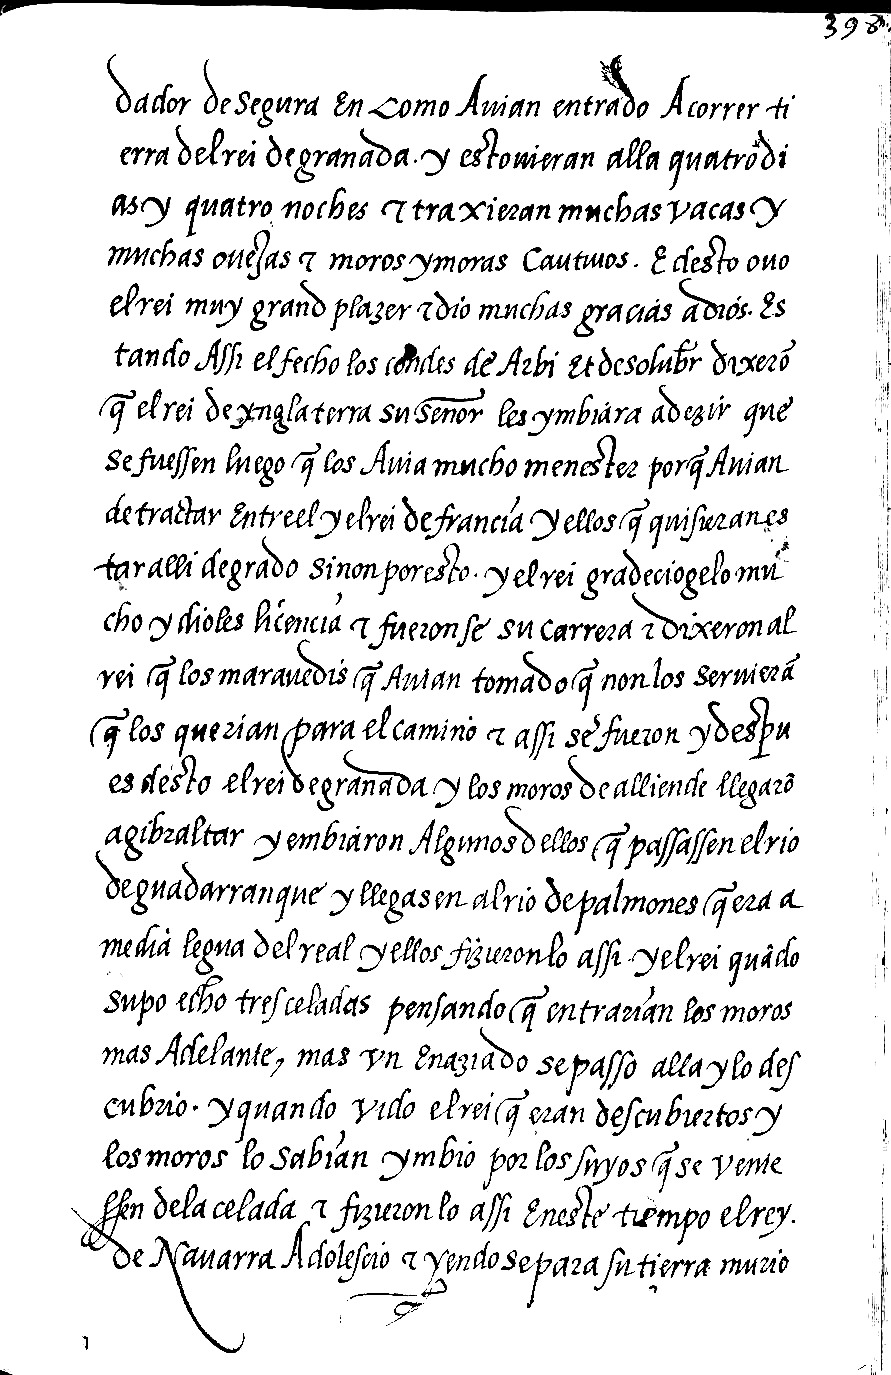 398
dador de Segura En Como Auian entrado A correr ti
erra del rei de granada. y estouieran alla quatro di
as y quatro noches τ traxieran muchas vacas y
muchas ouejas τ moros y moras Cautiuos. E desto ouo
el rei muy grand plazer τ dio muchas gracias a dios. Es
tando Assi el fecho los condes de Arbi Et de solubr̃ dixerõ
q̃ el rei de ynglaterra su señor les ymbiara a dezir que
se fuessen luego q̃ los Auia mucho menester porq̃ Auian
de tractar Entre el y el rei de francia y ellos q̃ quisieran es
tar alli de grado sinon por esto. y el rei gradeciogelo mu
cho y dioles licencia τ fueronse su carrera τ dixeron al
rei q̃ los marauedis q̃ Auian tomado q̃ non los seruierã
q̃ los querian para el camino τ assi se fueron y despu
es desto el rei de granada y los moros de alliende llegarõ
a gibraltar y embiaron Algunos dellos q̃ passassen el rio
de guadarranque y llegasen al rio de palmones q̃ era a
media legua del real y ellos fizieronlo assi y el rei quãdo
supo echo tres celadas pensando q̃ entrarian los moros
mas Adelante, mas vn Enaziado se passo alla y lo des
cubrio. y quando vido el rei q̃ eran descubiertos y
los moros lo sabian ymbio por los suyos q̃ se venie
ssen de la celada τ fizieronlo assi En este tiempo el rey.
de Nauarra Adolescio τ yendose para su tierra murio